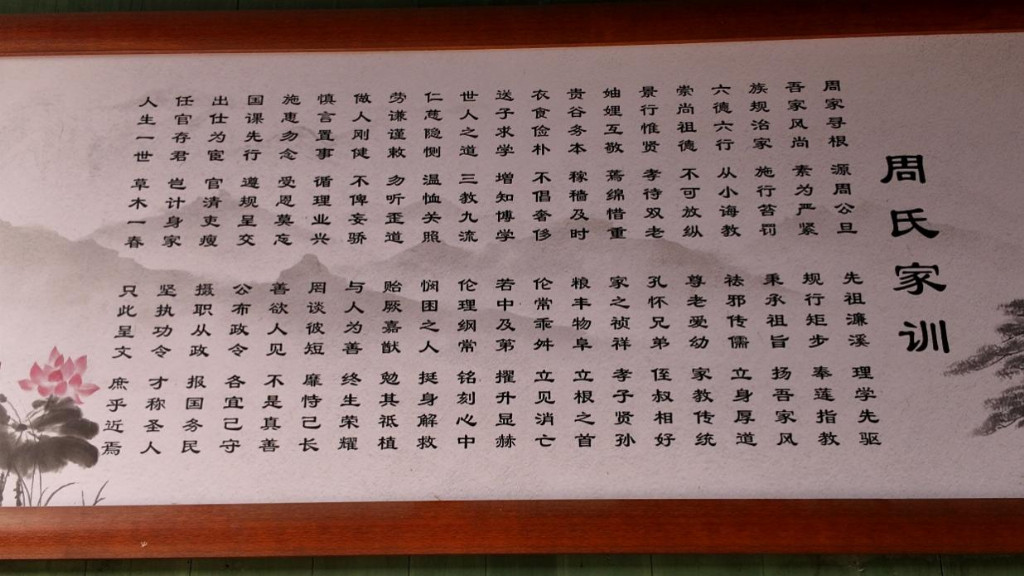 周氏家训
周家寻根 源周公旦 先祖濂溪 理学先驱
吾家风尚 素为严紧 规行矩步 奉莲指教
族规治家 施行笞罚 秉承祖旨 扬吾家风
六德六行 从小诲教 祛邪传儒 立身厚道
崇尚祖德 不可放纵 尊老爱幼 家教传统
景行惟贤 孝待双老 孔怀兄弟 侄叔相好
妯娌互敬 蔫绵惜重 家之祯祥 孝子贤孙
贵谷务本 稼穑及时 粮丰物阜 立根之首
衣食俭朴 不倡奢侈 伦常乖舛 立见消亡
送子求学 增知博学 若中及第 擢升显赫
世人之道 三教九流 伦理纲常 铭刻心中
仁慈隐恻 温恤关照 悯困之人 挺身解救
劳谦谨敕 勿听歪道 贻厥嘉猷 勉其祗植
做人刚健 不俾妄骄 与人为善 终生荣耀
慎言置事 循理业兴 罔谈彼短 靡恃己长
施惠勿念 受恩莫忘 善欲人见 不是真善
国课先行 遵规呈交 公布政令 各宜己守
出仕为宦 官清吏瘦 摄职从政 报国务民
任官存君 岂计身家 坚执功令 才称圣人
人生一世 草木一春 只此呈文 庶乎近焉